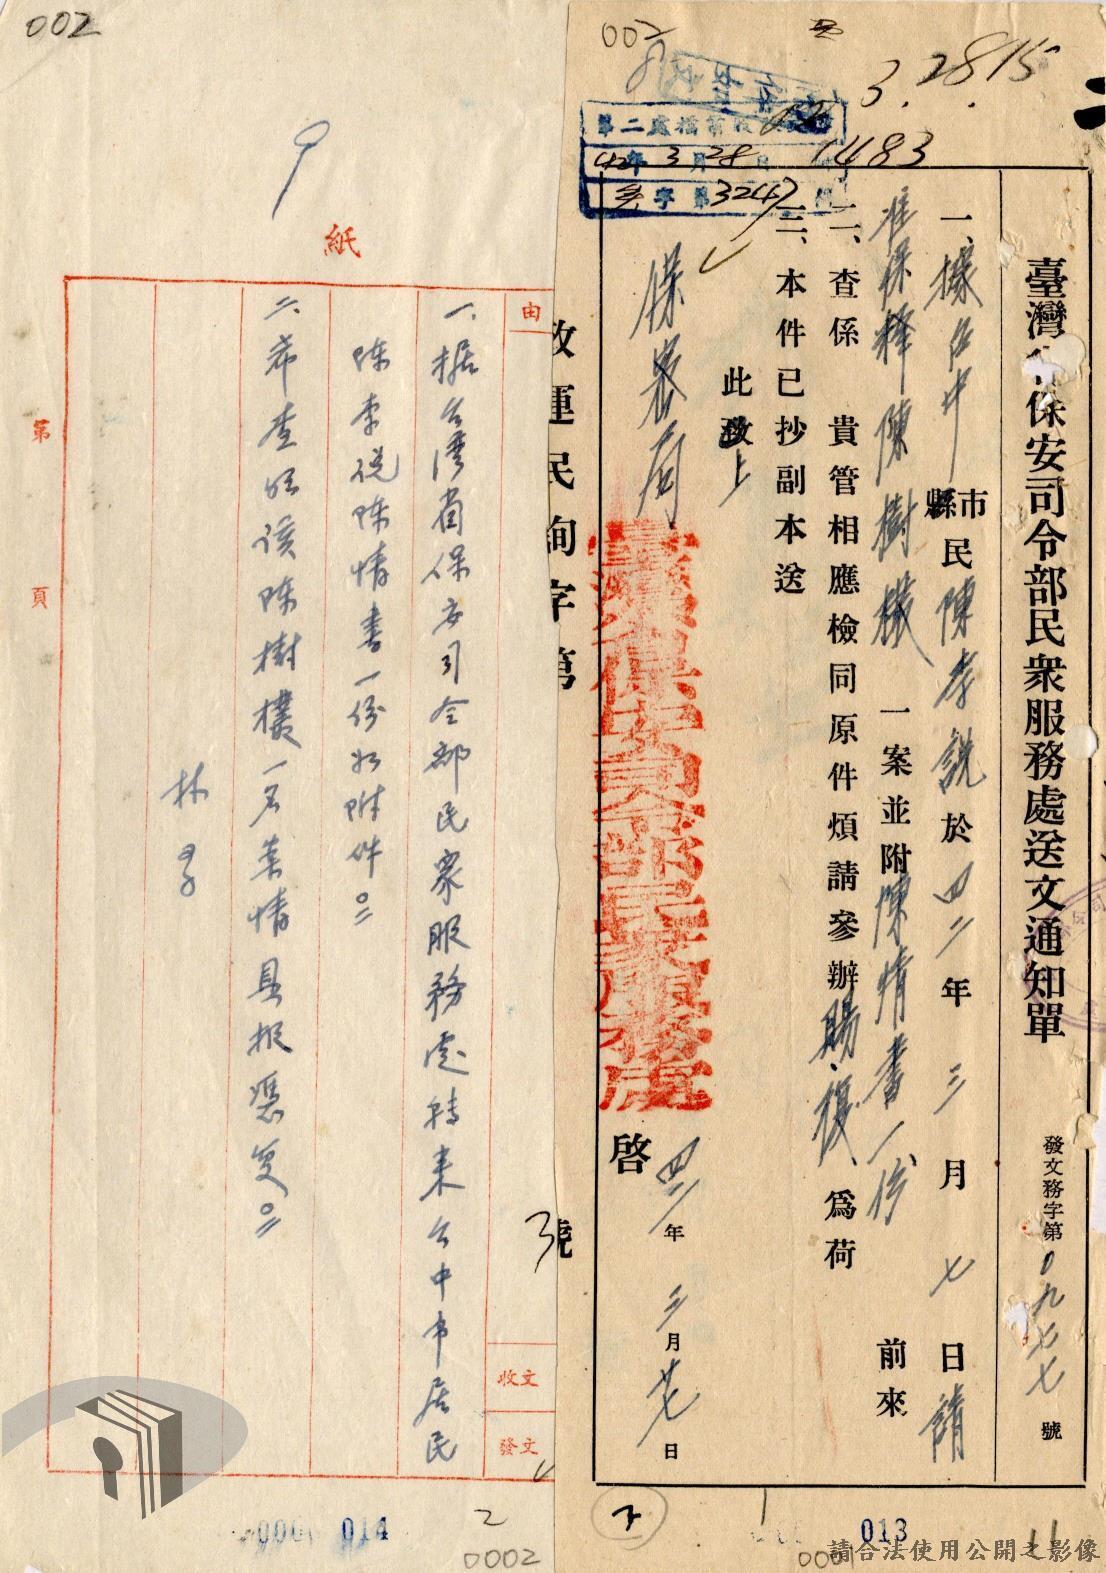 002
3.2815
1483
第二處檔案收
42年3月28日
字第3247
臺灣省保安司令部民衆服務處送文通知單
發文務字第0九七七號
一、據台中縣市民陳李說於四二年三月七日請
准保釋陳樹樸一案並附陳情書一份前來
二、查係貴管相應檢同原件煩請參辦賜復、為荷
三、本件已抄副本送
此致上
保密局
臺灣省保安司令部民衆服務處
啓
四二年三月廿七日
013
0001
11
請合法使用公開之影像
002
紙
由
收文
發文
第
頁
號
一、据台湾省保安司令部民眾服務處轉来台中市居民
陈李说陈情書一份如附件。
二、希查明该陈樹樸一名案情具报憑复。
014
2
0002